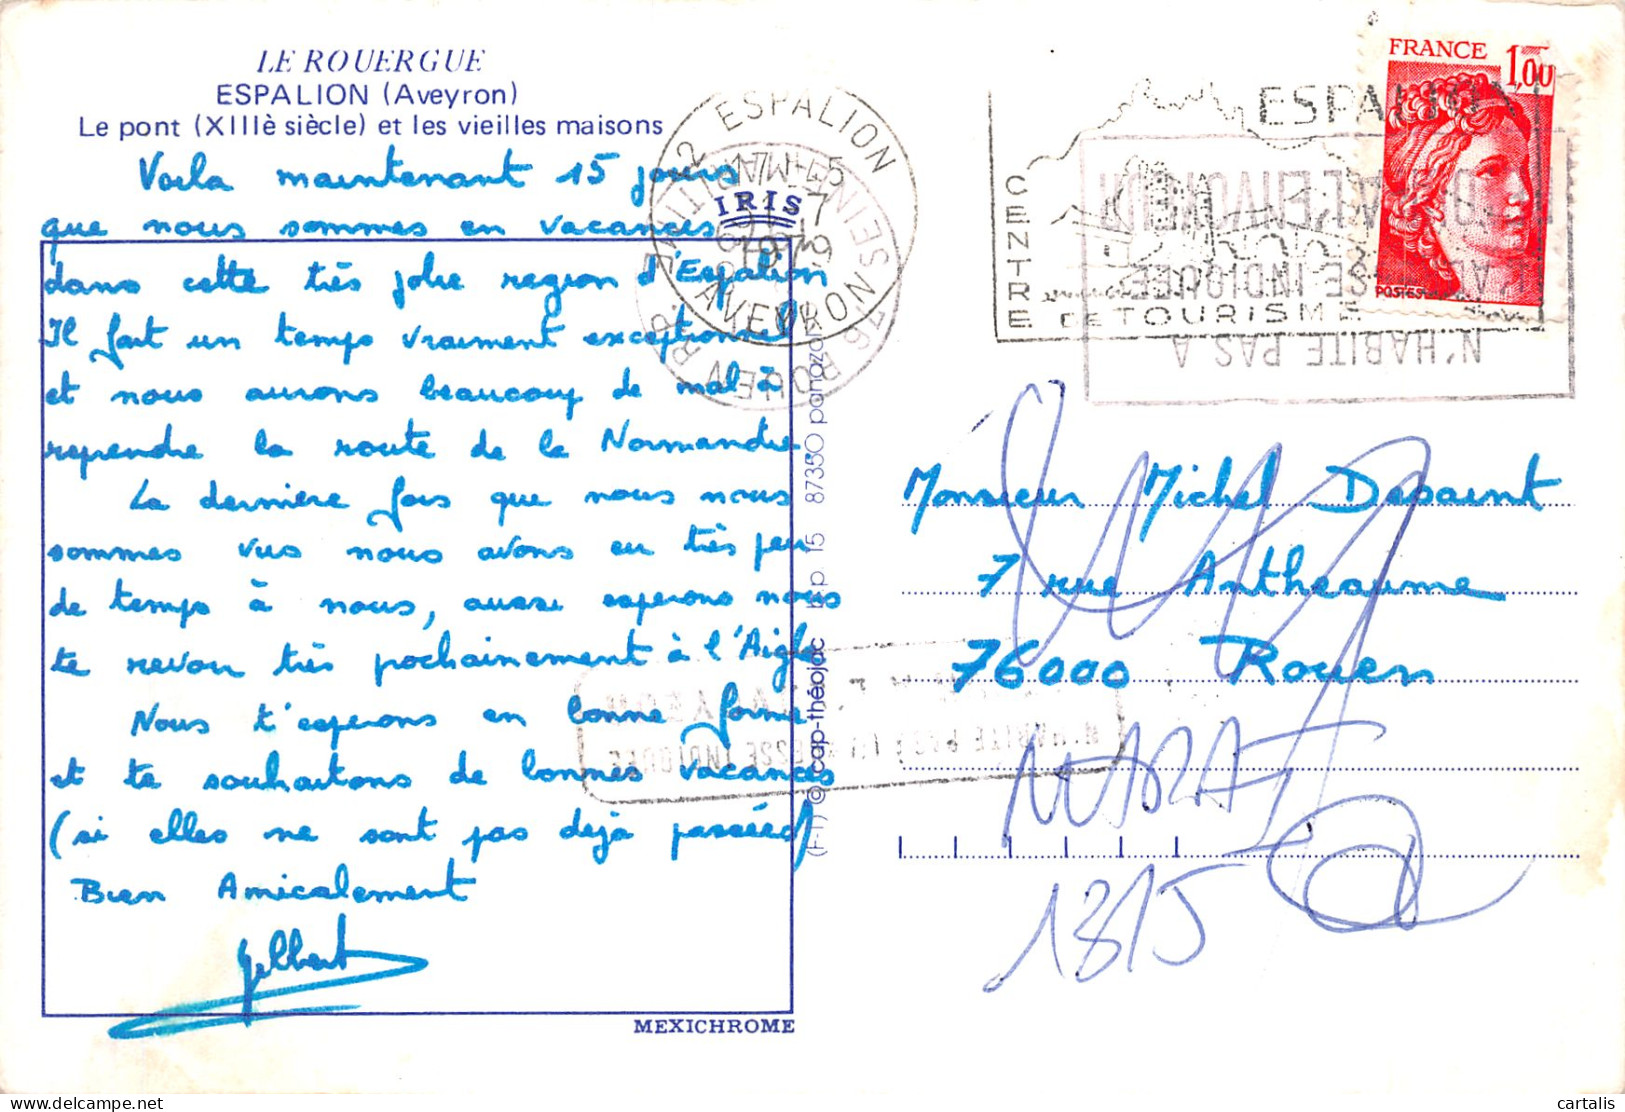 LE ROUERGUE
ESPALION (Aveyron)
Le pont (XIIIè siècle) et les vieilles maisons
Voila maintenant 15 jours
que nous sommes en vacances
dans cette très jolie region d'Espalion
Il fait un temps vraiment exceptionnel
et nous aurons beaucoup de mal à
reprendre la route de la Normandie
La dernière fois que nous nous
sommes vus nous avons eu très peu
de temps à nous, aussi esperons nous
te revoir très prochainement à l'Aigle
Nous t'esperons en bonne forme
et te souhaitons de bonnes vacances
(si elles ne sont pas dejà passées)
Bien Amicalement
Gilbert
MEXICHROME
IRIS
(F-I) © cap-théojac bp 15 87350 panazol
12 ESPALION
17H45
AVEYRON
ESPALION
CENTRE
DE TOURISME
FRANCE 1,00
POSTES
N'HABITE PAS A
L'ADRESSE INDIQUÉE
RETOUR A L'ENVOYEUR
N'HABITE PAS L'ADRESSE INDIQUÉE
Monsieur Michel Desaint
7 rue Antheaume
76000 Rouen
1815